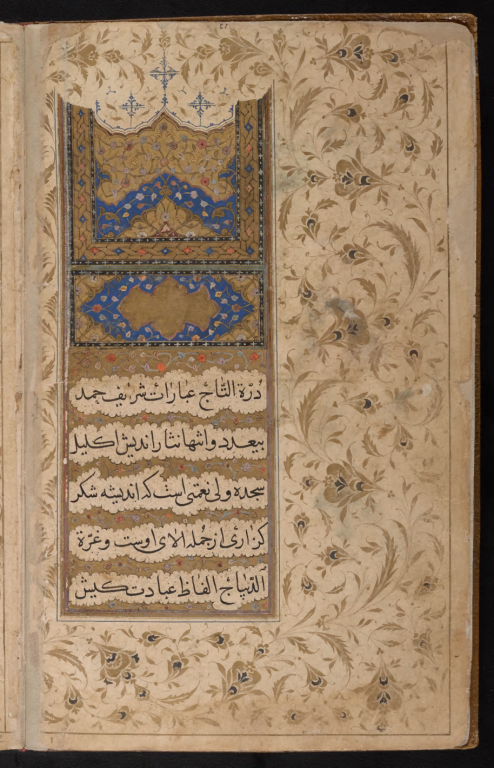 درة التاج عبارات شریف حمد
بیعدد و انتها نثار اندیش اکلیل
سجده ولی نعمتی است که اندیشه شکر
گزاری از جمله الای اوست و غرة
الدیباج الفاظ عبادت کیش